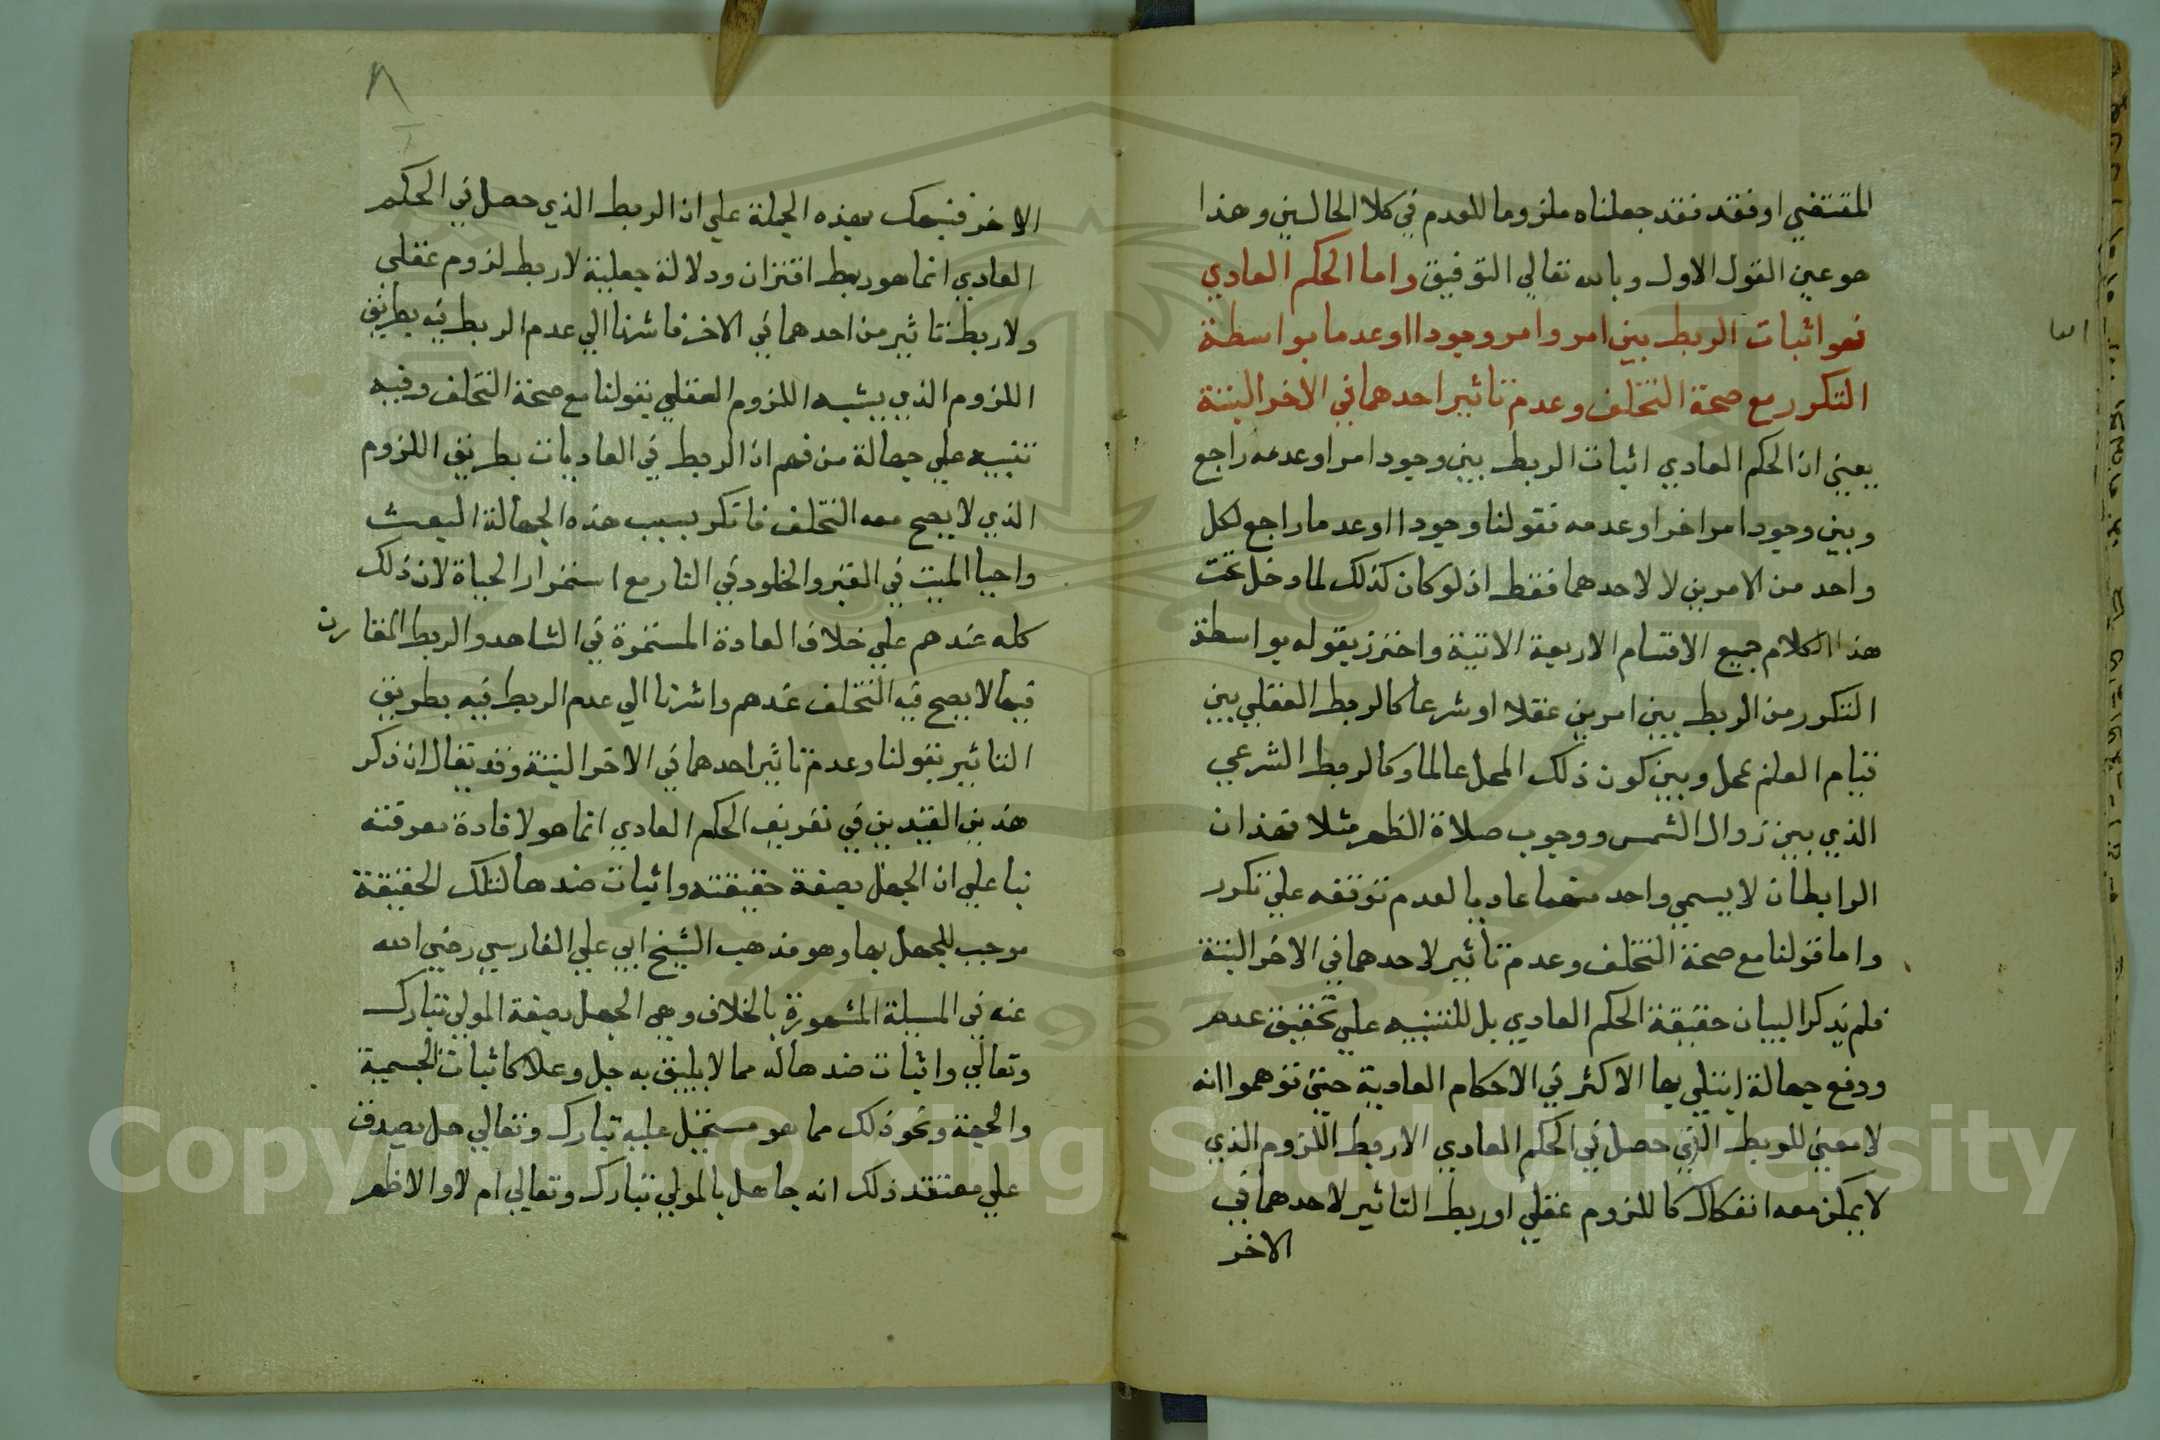 المقتضي او فقد فقد جعلناه ملزوما للعدم في كلا الحالين وهذا
هو عين القول الاول وبالله تعالي التوفيق واما الحكم العادي
فهو اثبات الربط بين امر وامر وجودا او عدما بواسطة
التكرر مع صحة التخلف وعدم تاثير احدهما في الاخر البتة
يعني ان الحكم العادي اثبات الربط بين وجود امر او عدمه راجع
وبين وجود امر اخر او عدمه فقولنا وجودا او عدما راجع لكل
واحد من الامرين لا لاحدهما فقط اذ لو كان كذلك لما دخل تحت
هذا الكلام جميع الاقسام الاربعة الاتية واحترز بقوله بواسطة
التكرر من الربط بين امرين عقلا او شرعا كالربط العقلي بين
قيام العلم بمحل وبين كون ذلك المحل عالما وكالربط الشرعي
الذي بين زوال الشمس ووجوب صلاة الظهر مثلا فهذان
الرابطان لا يسمي واحد منهما عاديا لعدم توقفه علي تكرر
واما قولنا مع صحة التخلف وعدم تاثير لاحدهما في الاخر البتة
فلم يذكر لبيان حقيقة الحكم العادي بل للتنبيه علي تحقيق عدم
ودفع جهالة ابتلي بها الاكثر في الاحكام العادية حتي توهموا انه
لا معني للربط التي حصل في الحكم العادي الا ربط اللزوم الذي
لا يمكن معه انفكاك كاللزوم عقلي او ربط التاثير لاحدهما في
الاخر
٨
الاخر فنبهك بهذه الجملة علي ان الربط الذي حصل في الحكم
العادي انما هو ربط اقتران ودلالة جعلية لا ربط لزوم عقلي
ولا ربط تاثير من احدهما في الاخر فاشرنا الي عدم الربط فيه بطريق
اللزوم الذي يشبه اللزوم العقلي بقولنا مع صحة التخلف وفيه
تنبيه علي جهالة من فهم ان الربط في العاديات بطريق اللزوم
الذي لا يصح معه التخلف فانكر بسبب هذه الجهالة البعث
واحيا الميت في القبر والخلود في النار مع استمرار الحياة لان ذلك
كله عندهم علي خلاف العادة المستمرة في الشاهد والربط المقارن
فيها لا يصح فيه التخلف عندهم واشرنا الي عدم الربط فيه بطريق
التاثير بقولنا وعدم تاثير احدهما في الاخر البتة وقد يقال ان ذكر
هذين القيدين في تعريف الحكم العادي انما هو لافادة معرفته
بنا علي ان الجهل بصفة حقيقته واثبات ضدها لتلك الحقيقة
موجب للجهل بها وهو مذهب الشيخ ابي علي الفارسي رضي الله
عنه في المسيلة المشهورة بالخلاف وهي الجهل بصفة المولي تبارك
وتعالي واثبات ضدها له مما لا يليق به جل وعلا كاثبات الجسمية
والجهة ونحو ذلك مما هو مستحيل عليه تبارك وتعالي هل يصدق
علي معتقد ذلك انه جاهل بالمولي تبارك وتعالي ام لا والاظهر
Copyright © King Saud University